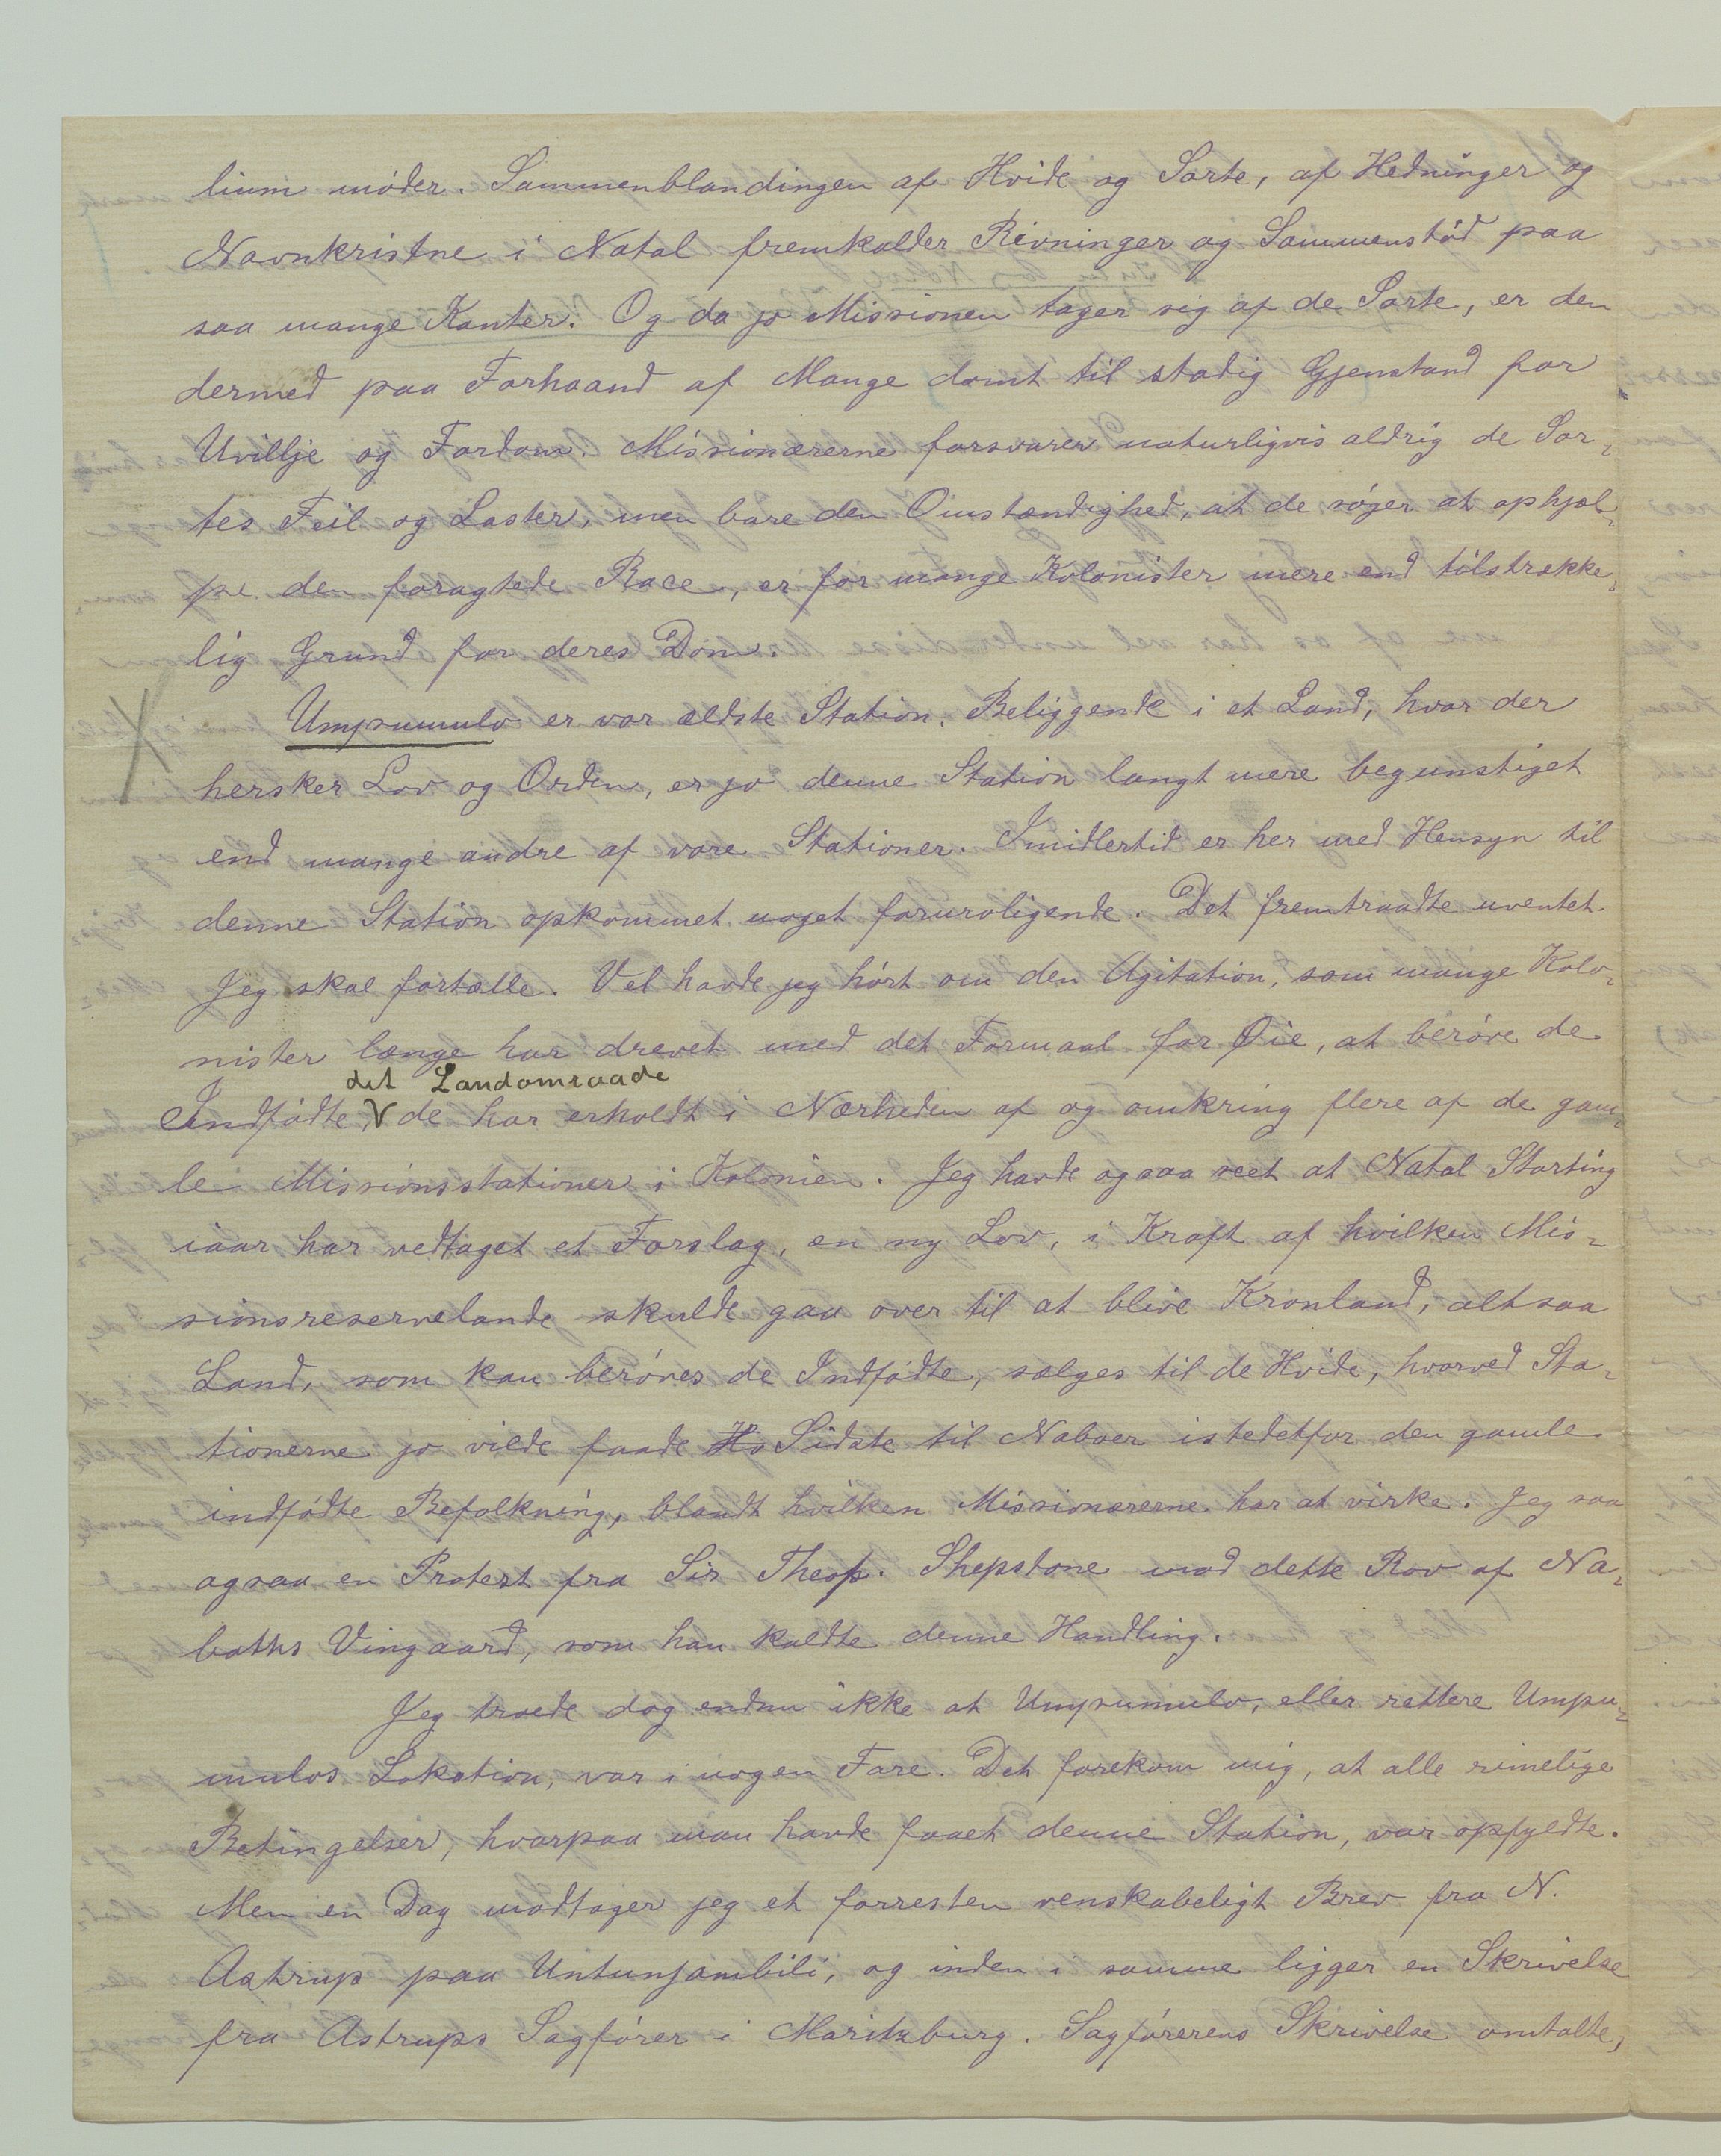 lium møder. Sammenblandingen af Hvide og Sorte, af Hedninger og
Navnkristne i Natal fremkalder Rivninger og Sammenstød paa
saa mange Kanter. Og da jo Missionen tager sig af de Sorte, er den
dermed paa Forhaand af Mange dømt til stadig Gjenstand for
Uvillje og Fordom. Missionærerne forsvarer naturligvis aldrig de Sor-
tes Feil og Laster, men bare den Omstændighed, at de søger at ophjæl-
pe den foragtede Race, er for mange Kolonister mere end tilstrække-
lig Grund for deres Dom.
Umpumulo er vor ældste Station. Beliggende i et Land, hvor der
hersker Lov og Orden, er jo denne Station langt mere begunstiget
end mange andre af vore Stationer. Imidlertid er her med Hensyn til
denne Station opkommet noget foruroligende. Det fremtraadte uventet.
Jeg skal fortælle. Vel havde jeg hørt om den Agitation, som mange Kolo-
nister længe har drevet med det Formaal for Øie, at berøve de
det Landomraade
Indfødte, V de har erholdt i Nærheden af og omkring flere af de gam-
le Missionsstationer i Kolonien. Jeg havde ogsaa seet at Natal Storting
iaar har vedtaget et Forslag, en ny Lov, i Kraft af hvilken Mis-
sionsreservelande skulde gaa over til at blive Kronland, altsaa
Land, som kan berøves de Indfødte, sælges til de Hvide, hvorved Sta-
tionerne jo vilde faade Hv Sidste til Naboer istedetfor den gamle
indfødte Befolkning, blandt hvilken Missionærerne har at virke. Jeg saa
ogsaa en Protest fra Sir Theop. Shepstone mod dette Rov af Na-
boths Vingaard, som han kaldte denne Handling.
Jeg troede dog endnu ikke at Umpumulo, eller rettere Umpu-
mulos Lokation, var i nogen Fare. Det forekom mig, at alle rimelige
Betingelser, hvorpaa man havde faaet denne Station, var opfyldte.
Men en Dag modtager jeg et forresten venskabeligt Brev fra N.
Astrup paa Untunjambili, og inden i samme ligger en Skrivelse
fra Astrups Sagfører i Maritzburg. Sagførerens Skrivelse omtalte,